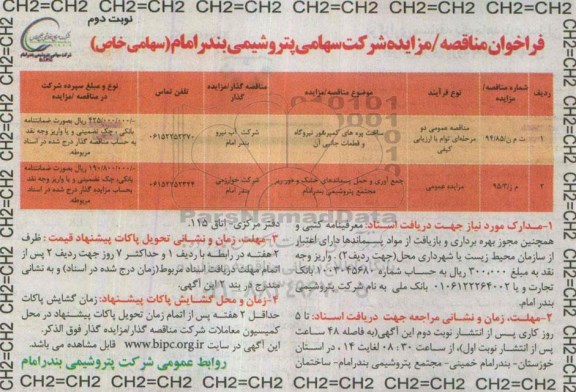 CH2=CH2 CH2=CH2 CH2=CH2 CH2=CH2 CH2=CH2 CH2=CH2
نوبت دوم
فراخوان مناقصه/مزایده شرکت سهامی پتروشیمی بندر امام (سهامی خاص)
ردیف شماره مناقصه/مزایده نوع فرآیند موضوع مناقصه/مزایده مناقصه گذار/مزایده گذار تلفن تماس نوع و مبلغ سپرده شرکت در مناقصه/مزایده
۱ مناقصه عمومی دو مرحله‌ای توام با ارزیابی کیفی ساخت پره های کمپرسور نیروگاه و قطعات جانبی آن شرکت آب نیرو بندر امام ۰۶۱۵۲۲۵۲۳۷۰ ریال بصورت ضمانتنامه بانکی، چک تضمینی و یا واریز وجه نقد به حساب مناقصه گذار درج شده در اسناد مربوطه.
۲ مزایده عمومی جمع آوری و حمل پسماندهای خشک و خوربریر مجتمع پتروشیمی بندرامام شرکت خوارزمی بندر امام ۰۶۱۵۲۲۵۲۴۲۴ ریال بصورت ضمانتنامه بانکی، چک تضمینی و یا واریز وجه نقد بحساب مزایده گذار درج شده در اسناد مربوطه.
۱-مدارک مورد نیاز جهت دریافت اسناد: معرفینامه کتبی و
همچنین مجوز بهره برداری و بازیافت از مواد پسماندها دارای اعتبار
از سازمان محیط زیست یا شهرداری محل(جهت ردیف۲). واریز وجه
نقد به مبلغ ۳۰۰.۰۰۰ ریال به حساب شماره بانک
تجارت و یا ۰۱۰۶۱۲۲۲۶۴۰۰۲ بانک ملی به نام شرکت پتروشیمی
بندر امام.
۲-مهلت، زمان و نشانی مراجعه جهت دریافت اسناد: تا ۵
روز کاری پس از انتشار نوبت دوم این آگهی(به فاصله ۴۸ ساعت
پس از انتشار نوبت اول)، از ساعت ۰۸:۳۰ لغایت ۱۴، در استان
خوزستان-بندرامام خمینی-مجتمع پتروشیمی بندرامام-ساختمان
دفتر مرکزی-اتاق ۱۱۵.
۳-مهلت، زمان و نشانی تحویل پاکات پیشنهاد قیمت: ظرف
۲ هفته در رابطه با ردیف ۱ و حداکثر ۷ روز جهت ردیف ۲ پس از
اتمام مهلت دریافت اسناد مربوط(زمان درج شده در اسناد) و به نشانی
مندرج در بند ۲ این آگهی.
۴-زمان و محل گشایش پاکات پیشنهاد: زمان گشایش پاکات
حداقل ۲ هفته پس از اتمام زمان تحویل پاکات پیشنهاد در محل
کمیسیون معاملات شرکت مناقصه گذار/مزایده گذار فوق الذکر.
این آگهی در سایت www.bipc.org.ir قابل مشاهده می باشد.
روابط عمومی شرکت پتروشیمی بندرامام
CH2=CH2 CH2=CH2 CH2=CH2 CH2=CH2 CH2=CH2 CH2=CH2